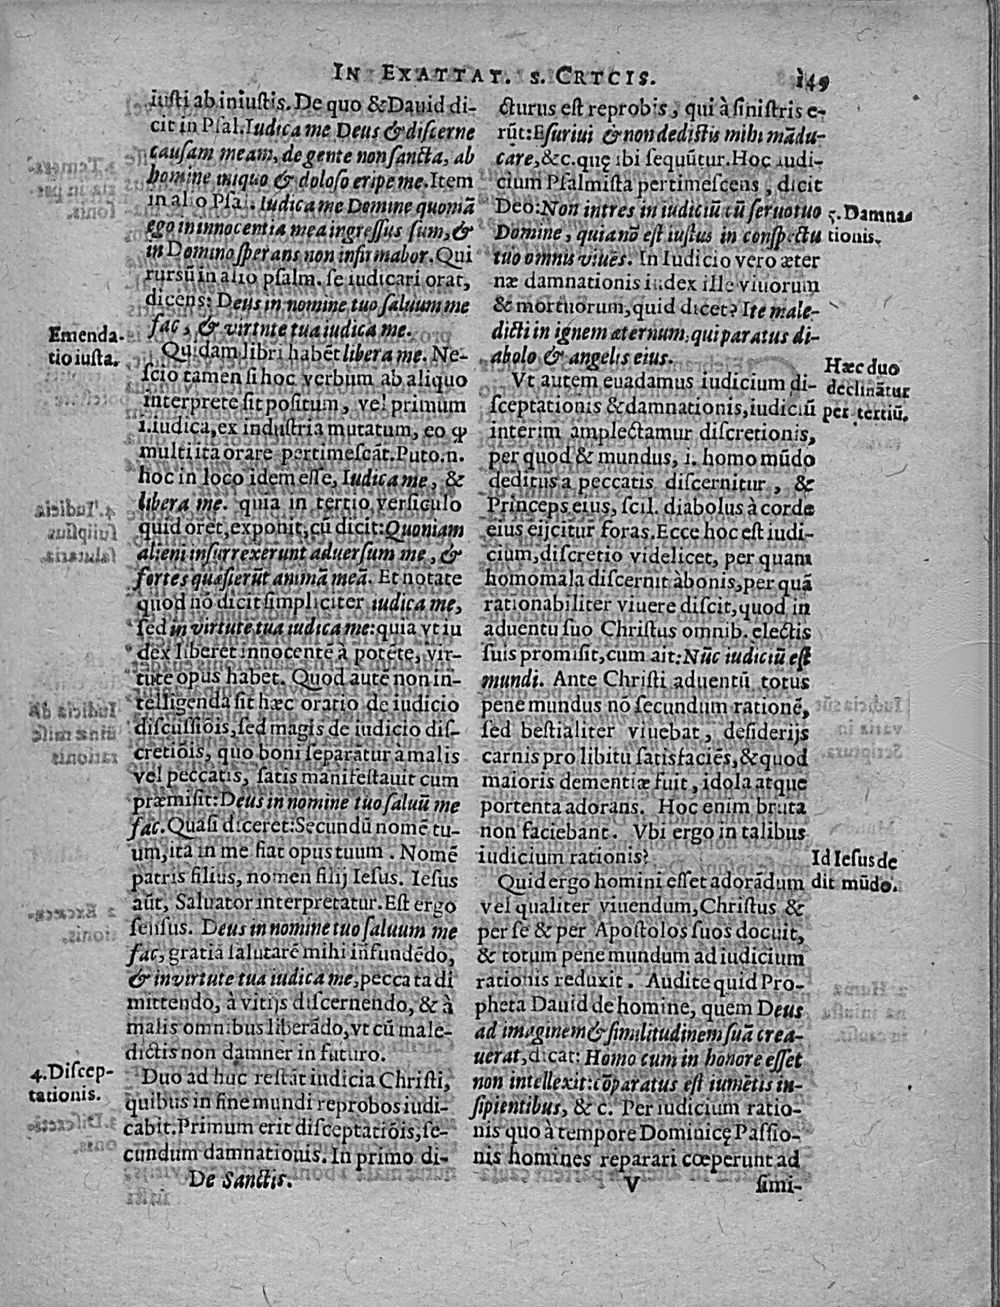 IN EXATTAT. S. CRTCIS. 149
iusti ab iniustis. De quo & Dauid di-
cit in Psal. Iudica me Deus & discerne
causam meam, de gente non sancta, ab
homine iniquo & doloso eripe me. Item
in alio Psal. Iudica me Domine quoniã
ego in innocentia mea ingressus sum, &
in Domino sperans non infirmabor. Qui
rursũ in alio psalm. se iudicari orat,
dicens: Deus in nomine tuo saluum me
fac, & virtute tua iudica me.
Emenda-
tio iusta.
Quidam libri habẽt libera me. Ne-
scio tamen si hoc verbum ab aliquo
interprete sit positum, vel primum
i. iudica, ex industria mutatum, eo ꝙ
multi ita orare pertimescãt. Puto. n.
hoc in loco idem esse, Iudica me, &
libera me. quia in tertio versiculo
quid oret, exponit, cũ dicit: Quoniam
alieni insurrexerunt aduersum me, &
fortes quæsierũt animã meã. Et notate
quod nõ dicit simpliciter iudica me,
sed in virtute tua iudica me: quia vt iu
dex liberet innocentẽ à potẽte, vir-
tute opus habet. Quod autẽ non in-
telligenda sit hæc oratio de iudicio
discussiõis, sed magis de iudicio dis-
cretiõis, quo boni separãtur à malis
vel peccatis, satis manifestauit cum
præmisit: Deus in nomine tuo saluũ me
fac. Quasi diceret: Secundũ nomẽ tu-
um, ita in me fiat opus tuum. Nomẽ
patris filius, nomen filij Iesus. Iesus
aũt, Saluator interpretatur. Est ergo
sensus. Deus in nomine tuo saluum me
fac, gratiã salutarẽ mihi infundẽdo,
& in virtute tua iudica me, peccata di
mittendo, à vitijs discernendo, & à
malis omnibus liberãdo, vt cũ male-
dictis non damner in futuro.
4. Discep-
tationis.
Duo ad huc restãt iudicia Christi,
quibus in fine mundi reprobos iudi-
cabit. Primum erit disceptatiõis; se-
cundum damnationis. In primo di-
De Sanctis.
cturus est reprobis, qui à sinistris e-
rũt: Esuriui & non dedistis mihi mãdu-
care, &c. quę ibi sequũtur. Hoc iudi-
cium Psalmista pertimescens, dicit
Deo: Non intres in iudiciũ cũ seruo tuo
Domine, quia nõ est iustus in conspectu
tuo omnis viuẽs. In Iudicio vero æter
næ damnationis iudex ille viuorum
& mortuorum, quid dicet? Ite male-
dicti in ignem æternum, qui paratus di-
abolo & angelis eius.
5. Damna-
tionis.
Vt autem euadamus iudicium di-
sceptationis & damnationis, iudiciũ
interim amplectamur discretionis,
per quod & mundus, i. homo mũdo
deditus a peccatis discernitur, &
Princeps eius, scil. diabolus à corde
eius eijcitur foras. Ecce hoc est iudi-
cium, discretio videlicet, per quam
homo mala discernit à bonis, per quã
rationabiliter viuere discit, quod in
aduentu suo Christus omnib. electis
suis promisit, cum ait: Nũc iudiciũ est
mundi. Ante Christi aduentũ totus
pene mundus nõ secundum rationẽ,
sed bestialiter viuebat, desiderijs
carnis pro libitu satisfaciẽs, & quod
maioris dementiæ fuit, idola atque
portenta adorans. Hoc enim bruta
non faciebant. Vbi ergo in talibus
iudicium rationis?
Hæc duo
declinãtur
per tertiũ.
Quid ergo homini esset adorãdum
vel qualiter viuendum, Christus &
per se & per Apostolos suos docuit,
& totum pene mundum ad iudicium
rationis reduxit. Audite quid Pro-
pheta Dauid de homine, quem Deus
ad imaginem & similitudinem suã crea-
uerat, dicat: Homo cum in honore esset
non intellexit: cõparatus est iumẽtis in-
sipientibus, & c. Per iudicium ratio-
nis quo à tempore Dominicę Passio-
nis homines reparari cœperunt ad
Id Iesus de
dit mũdo.
V simi-